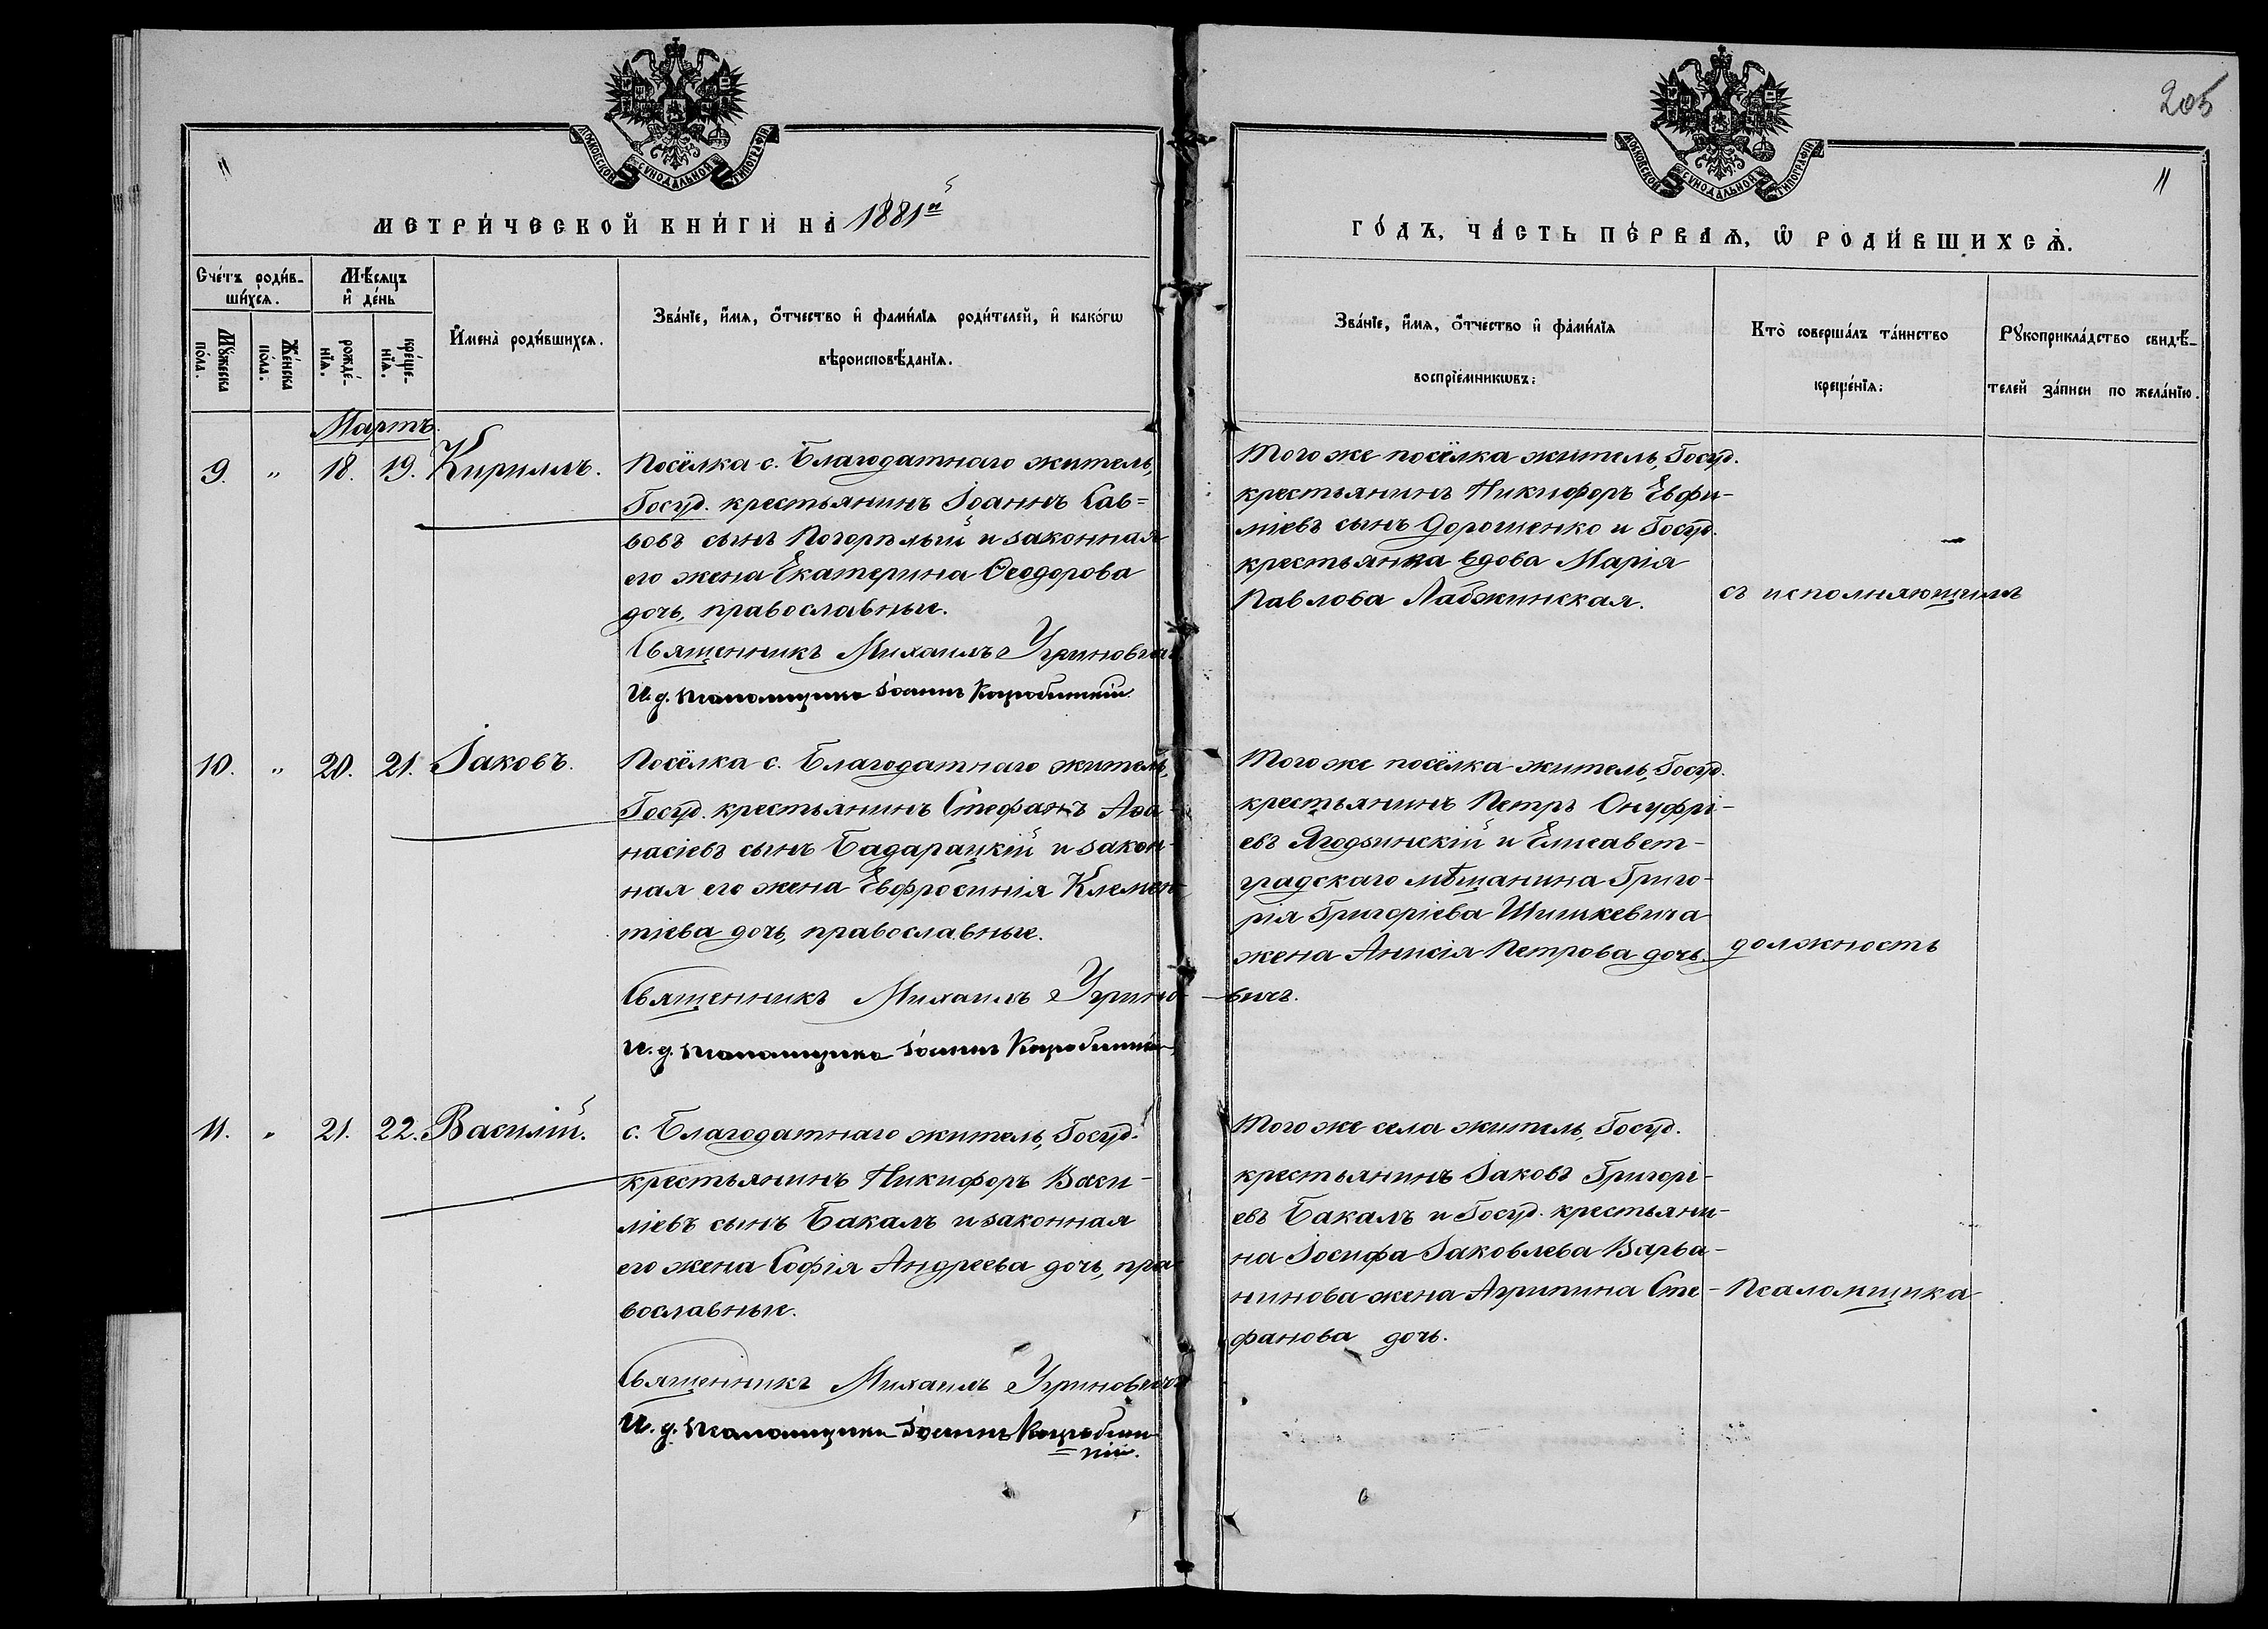 205
МОСКОВСКОЙ СѴНОДАЛЬНОЙ ТИПОГРАФІИ
МОСКОВСКОЙ СѴНОДАЛЬНОЙ ТИПОГРАФІИ
11
11
МЕТРИ́ЧЕСКОЙ КНИ́ГИ НА̀ 1881й
ГО́ДЪ, ЧА́СТЬ ПЕ́РВАѦ, Ѡ҆ РОДИ́ВШИХСѦ.
Сче́тъ роди́в-
шихсѧ.
Мѣ́сѧцъ
и҆ де́нь
Мꙋ́жеска
по́ла.
Же́нска
по́ла.
рожде́-
нїѧ.
креще́-
нїѧ.
И҆мена̀ роди́вшихсѧ.
Зва́нїе, и҆́мѧ, ѻ҆́тчество и҆ фами́лїѧ роди́телей, и҆ како́гѡ
вѣроисповѣ́данїѧ.
Зва́нїе, и҆́мѧ, ѻ҆́тчество и҆ фами́лїѧ
воспрїе́мникѡвъ:
Кто̀ соверша́лъ та́инство
креще́нїѧ:
Рꙋкоприкла́дство свидѣ́-
телей за́писи по жела́нїю.
Мартъ.
9. " 18. 19. Кириллъ.
Посёлка с. Благодатнаго житель,
Госуд. крестьянинъ Іоаннъ Сав=
вовъ сынъ Погорѣлый и законная
его жена Екатерина Ѳеодорова
дочь, православные.
Священникъ Михаилъ Угриновичъ
И. д. псаломщика Іоаннъ Коробчинскій
Того же посёлка житель, Госуд.
крестьянинъ Никифоръ Евфи-
міевъ сынъ Дорошенко и Госуд.
крестьянка вдова Марія
Павлова Лабжинская.
съ исполняющимъ
10. " 20. 21. Іаковъ.
Посёлка с. Благодатнаго житель,
Госуд. крестьянинъ Стефанъ Аѳа-
насіевъ сынъ Бадарацкій и закон-
ная его жена Евфросинія Клемен-
тіева дочь, православные.
Священникъ Михаилъ Угрино-
вичъ.
И. д. псаломщика Іоаннъ
Того же посёлка житель, Госуд.
крестьянинъ Петръ Онуфрі-
евъ Ягодзинскій и Елисавет-
градскаго мѣщанина Григо-
рія Григоріева Шишкевича
жена Анисія Петрова дочь.
должность
11. " 21. 22. Василій.
с. Благодатнаго житель, Госуд.
крестьянинъ Никифоръ Васи-
ліевъ сынъ Бакалъ и законная
его жена Софія Андреева дочь, пра-
вославные.
Священникъ Михаилъ Угриновичъ
И. д. псаломщика Іоаннъ
Того же села житель, Госуд.
крестьянинъ Іаковъ Григорі-
евъ Бакалъ и Госуд. крестьяни-
на Іосифа Іаковлева Варва-
нинова жена Агрипина Сте-
фанова дочь.
Псаломщика